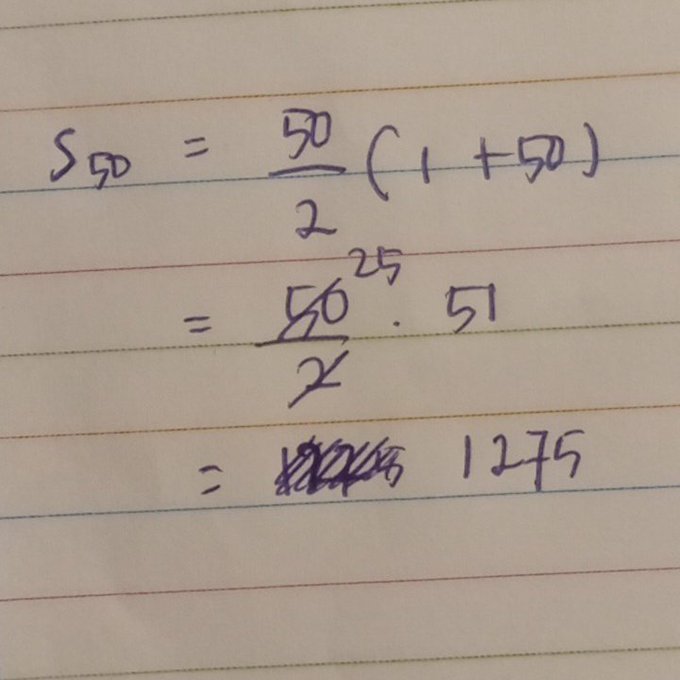 S₅₀ = 50/2 (1 + 50)
= 50/2 25 · 51
= 1275